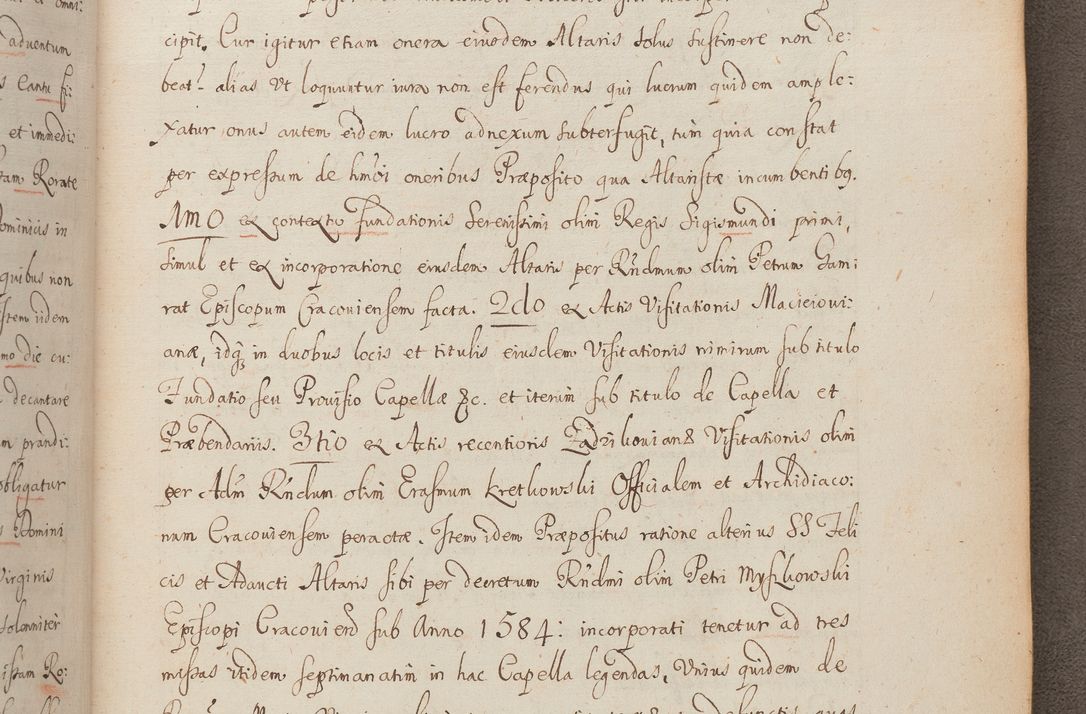 adventum
cantu fi:
et immedi:
tam Rorate
Dominicis in
quibus non
idem
mo die cu:
decantare
m prandi:
obligatur
Domini
Virginis
Solenniter
issam Ro:
cipit. Cur igitur etiam onera eiusdem Altaris solus sustinere non de:
beat? alias Ut loquuntur iura non est ferendus qui lucrum quidem ample:
xatur onus autem eidem lucro adnexum subterfugit, tum quia constat
per expressum de hmõi oneribus Præposito qua Altaristæ incumbentibq.
1mo ex contextu fundationis Serenissimi olim Regis Sigismundi primi,
simul et ex incorporatione eiusdem Altaris per Rndmum olim Petrum Gam:
rat Episcopum Cracoviensem facta. 2do ex Actis Visitationis Macieiovi:
anæ, idq in duobus locis et titulis eiusdem Visitationis nimirum sub titulo
Fundatio seu Provisio Capellæ &c. et iterum sub titulo de Capella et
Præbendariis. 3tio ex Actis recentioris Zadzikovianæ Visitationis olim
per Adm Rndum olim Erasmum Kretkowski Officialem et Archidiaco:
num Cracoviensem peractæ. Item idem Præpositus ratione alterius SS Feli
cis et Adaucti Altaris sibi per decretum Rndmi olim Petri Myszkowski
Episcopi Cracovien sub Anno 1584: incorporati tenetur ad tres
missas itidem septimanatim in hac Capella legendas, Unius quidem de